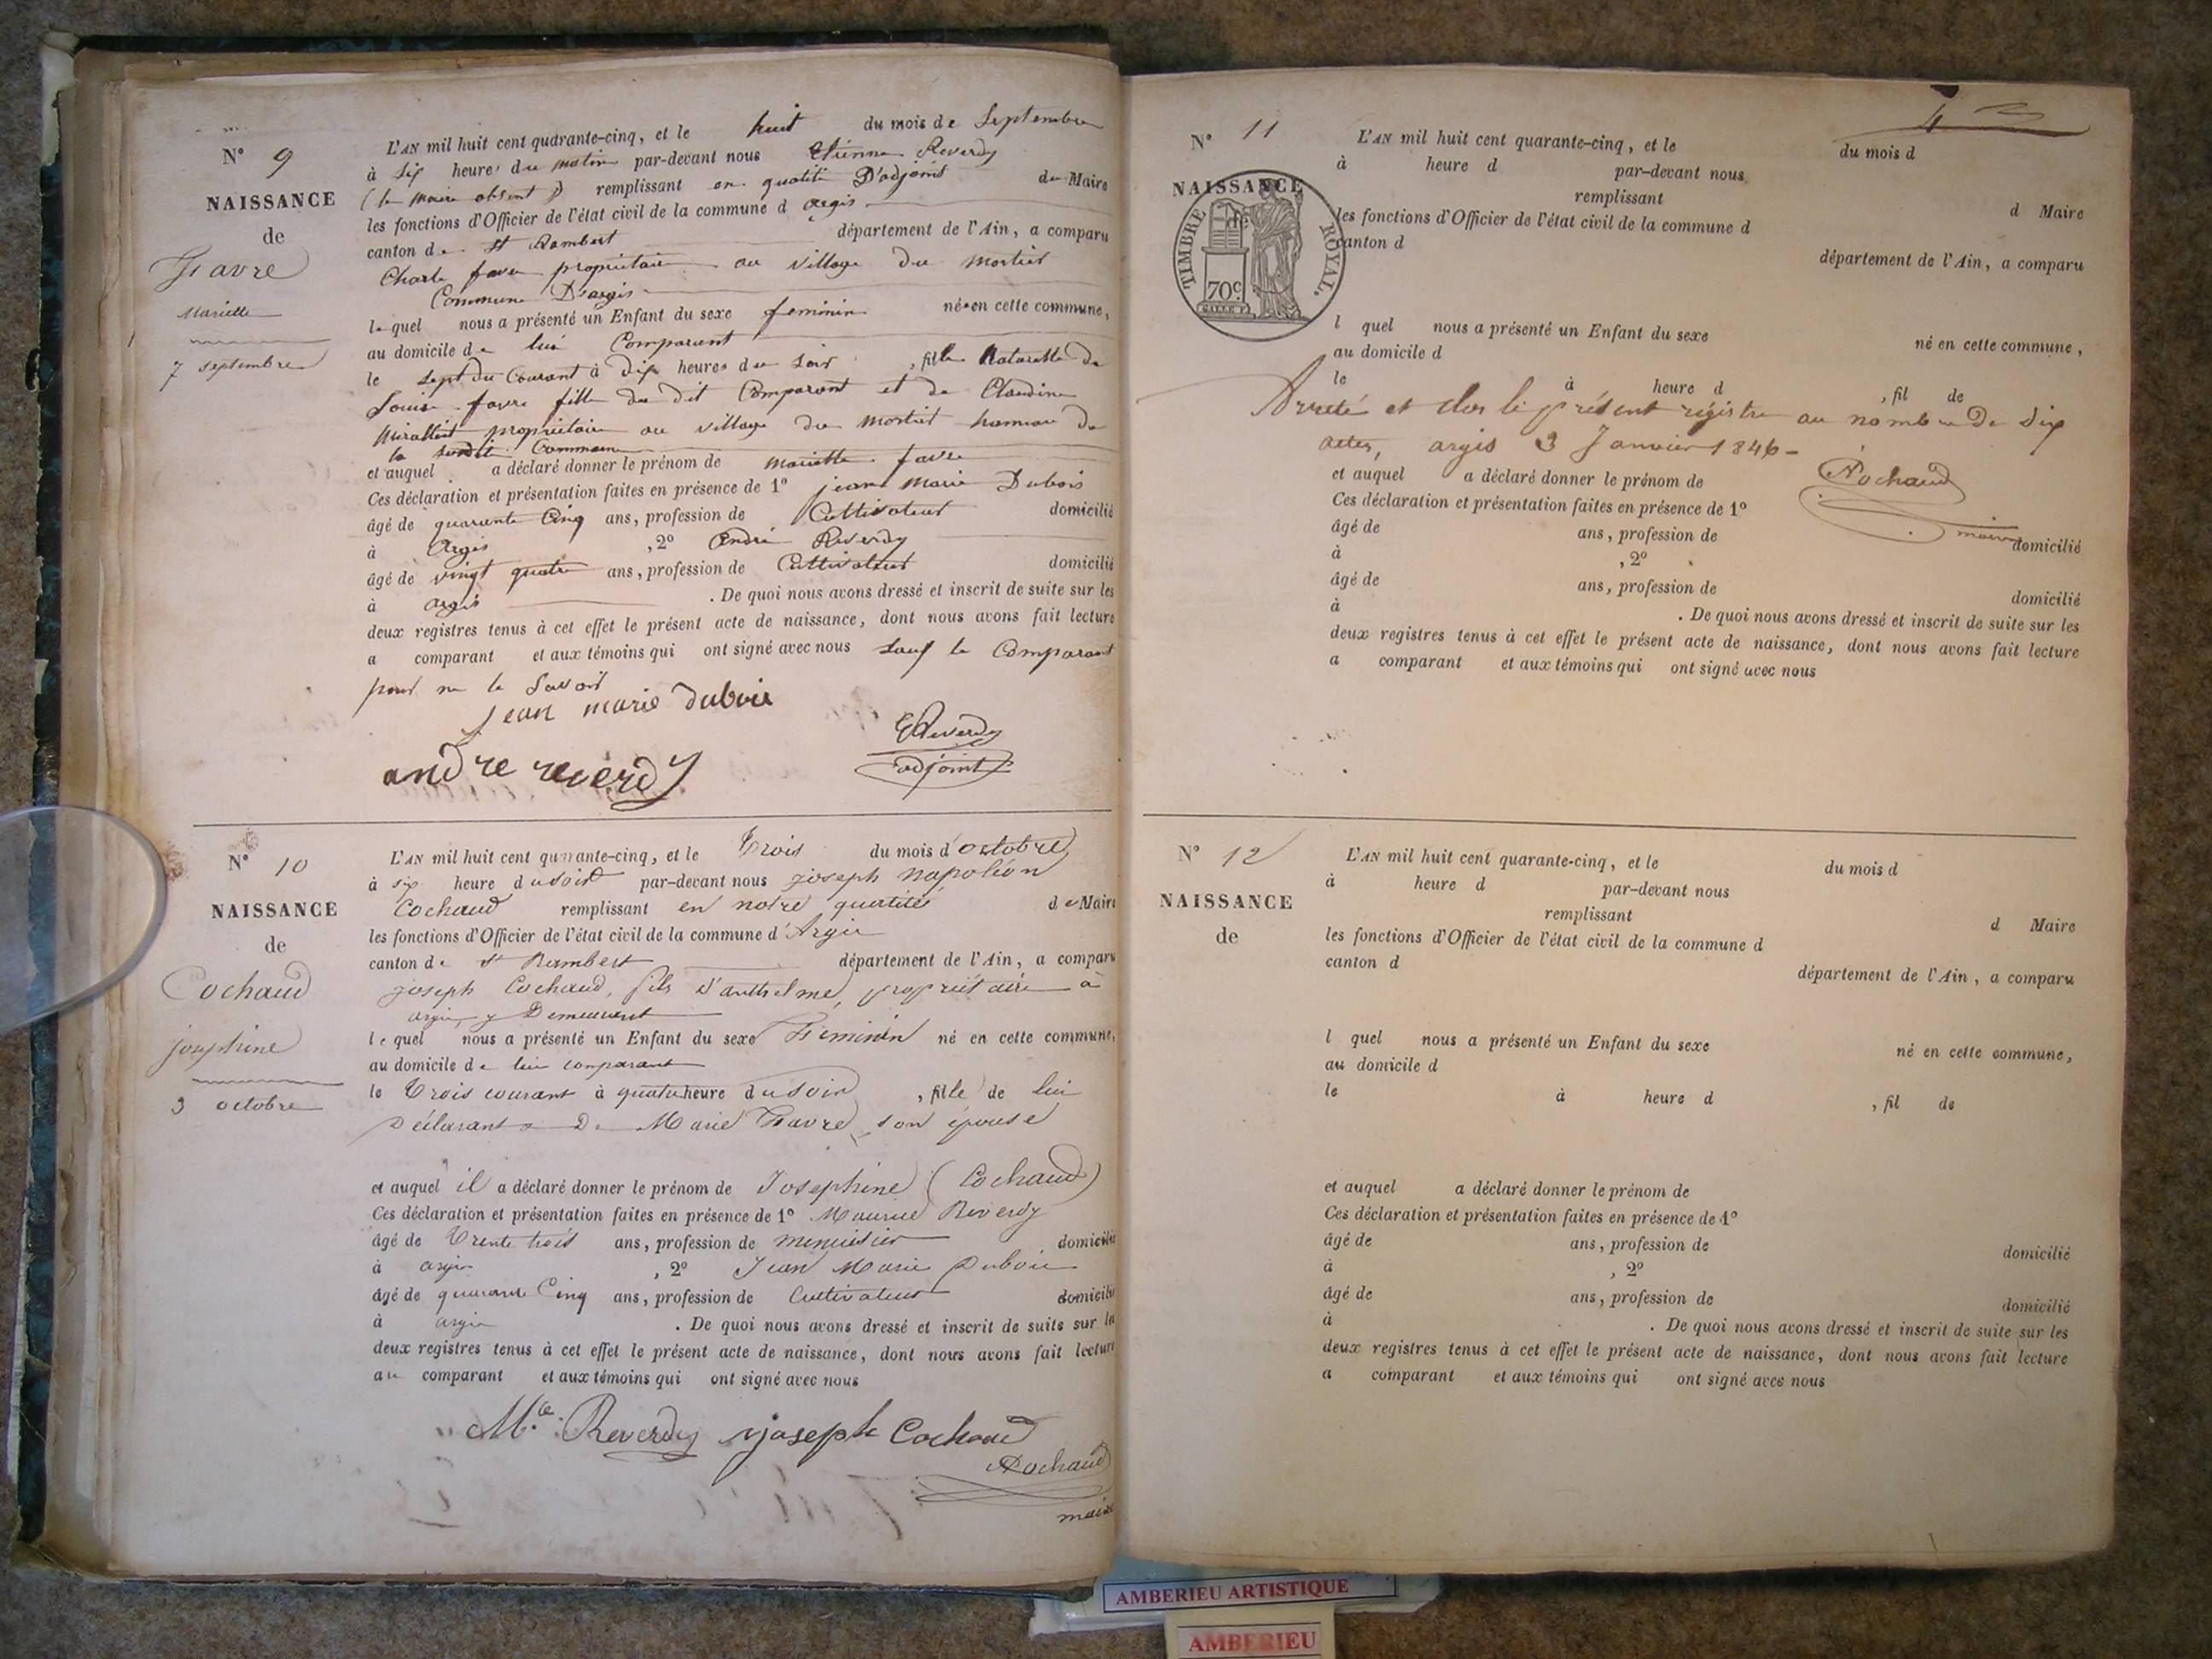 N° 9
NAISSANCE
de
Favre
Mariette
7 septembre
L'AN mil huit cent quarante-cinq, et le huit du mois de Septembre
à six heures du matin par-devant nous Etienne Reverdy
(le maire absent) remplissant en qualité D'adjoint du Maire
les fonctions d'Officier de l'état civil de la commune d argis
canton de st Rambert département de l'Ain, a comparu
Charle favre propriétaire au village du mortier
Commune D'argis
lequel nous a présenté un Enfant du sexe feminin née en cette commune,
au domicile de lui Comparant
le sept du Courant à Dix heures du soir, fille Naturelle de
Louise favre fille du dit Comparant et de Claudine
propriétaire au village du mortier hameau de
la susdite Commune
et auquel a déclaré donner le prénom de mariette favre
Ces déclaration et présentation faites en présence de 1° jean Marie Dubois
âgé de quarante Cinq ans, profession de Cultivateur domicilié
à Argis, 2° André Reverdy
âgé de vingt quatre ans, profession de Cultivateur domicilié
à argis. De quoi nous avons dressé et inscrit de suite sur les
deux registres tenus à cet effet le présent acte de naissance, dont nous avons fait lecture
a comparant et aux témoins qui ont signé avec nous sauf le Comparant
pour ne le savoir
jean marie dubois
andre reverdy
EReverdy
adjoint
N° 10
NAISSANCE
de
Cochaud
josephine
3 octobre
L'AN mil huit cent quarante-cinq, et le Trois du mois d'octobre
à six heure du soir par-devant nous joseph napoléon
Cochaud remplissant en notre qualité de Maire
les fonctions d'Officier de l'état civil de la commune d'Argis
canton de st Rambert département de l'Ain, a comparu
joseph Cochaud, fils d'anthelme, propriétaire à
argis y Demeurant
lequel nous a présenté un Enfant du sexe Feminin né en cette commune,
au domicile de lui comparant
le Trois courant à quatre heure du soir, fille de lui
Déclarant & De Marie Favre, son épouse
et auquel il a déclaré donner le prénom de Josephine (Cochaud)
Ces déclaration et présentation faites en présence de 1° Maurice Reverdy
âgé de Trente trois ans, profession de menuisier domicilié
à argis, 2° Jean Marie Dubois
âgé de quarante Cinq ans, profession de Cultivateur domicilié
à argis. De quoi nous avons dressé et inscrit de suite sur les
deux registres tenus à cet effet le présent acte de naissance, dont nous avons fait lecture
au comparant et aux témoins qui ont signé avec nous
Mce Reverdy joseph Cochaud
NCochaud
maire
4
N° 11
NAISSANCE
de
TIMBRE ROYAL.
70c
L'AN mil huit cent quarante-cinq, et le du mois d
à heure d par-devant nous
remplissant d Maire
les fonctions d'Officier de l'état civil de la commune d
canton d département de l'Ain, a comparu
l quel nous a présenté un Enfant du sexe né en cette commune,
au domicile d
le à heure d, fil de
Arreté et clos le présent régistre au nombre De Dix
actes, argis 3 Janvier 1846 -
NCochaud
maire
et auquel a déclaré donner le prénom de
Ces déclaration et présentation faites en présence de 1°
âgé de ans, profession de domicilié
à, 2°
âgé de ans, profession de domicilié
à. De quoi nous avons dressé et inscrit de suite sur les
deux registres tenus à cet effet le présent acte de naissance, dont nous avons fait lecture
a comparant et aux témoins qui ont signé avec nous
N° 12
NAISSANCE
de
L'AN mil huit cent quarante-cinq, et le du mois d
à heure d par-devant nous
remplissant d Maire
les fonctions d'Officier de l'état civil de la commune d
canton d département de l'Ain, a comparu
l quel nous a présenté un Enfant du sexe né en cette commune,
au domicile d
le à heure d, fil de
et auquel a déclaré donner le prénom de
Ces déclaration et présentation faites en présence de 1°
âgé de ans, profession de domicilié
à, 2°
âgé de ans, profession de domicilié
à. De quoi nous avons dressé et inscrit de suite sur les
deux registres tenus à cet effet le présent acte de naissance, dont nous avons fait lecture
a comparant et aux témoins qui ont signé avec nous
AMBERIEU ARTISTIQUE
AMBERIEU